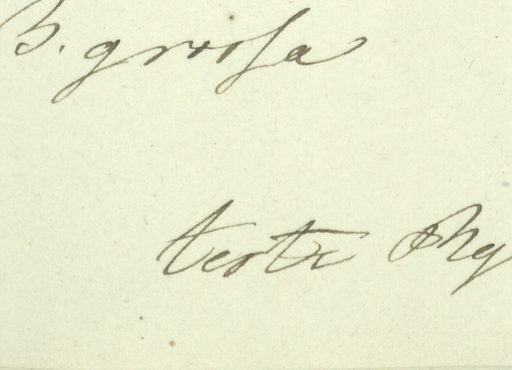 B. grossa
teste